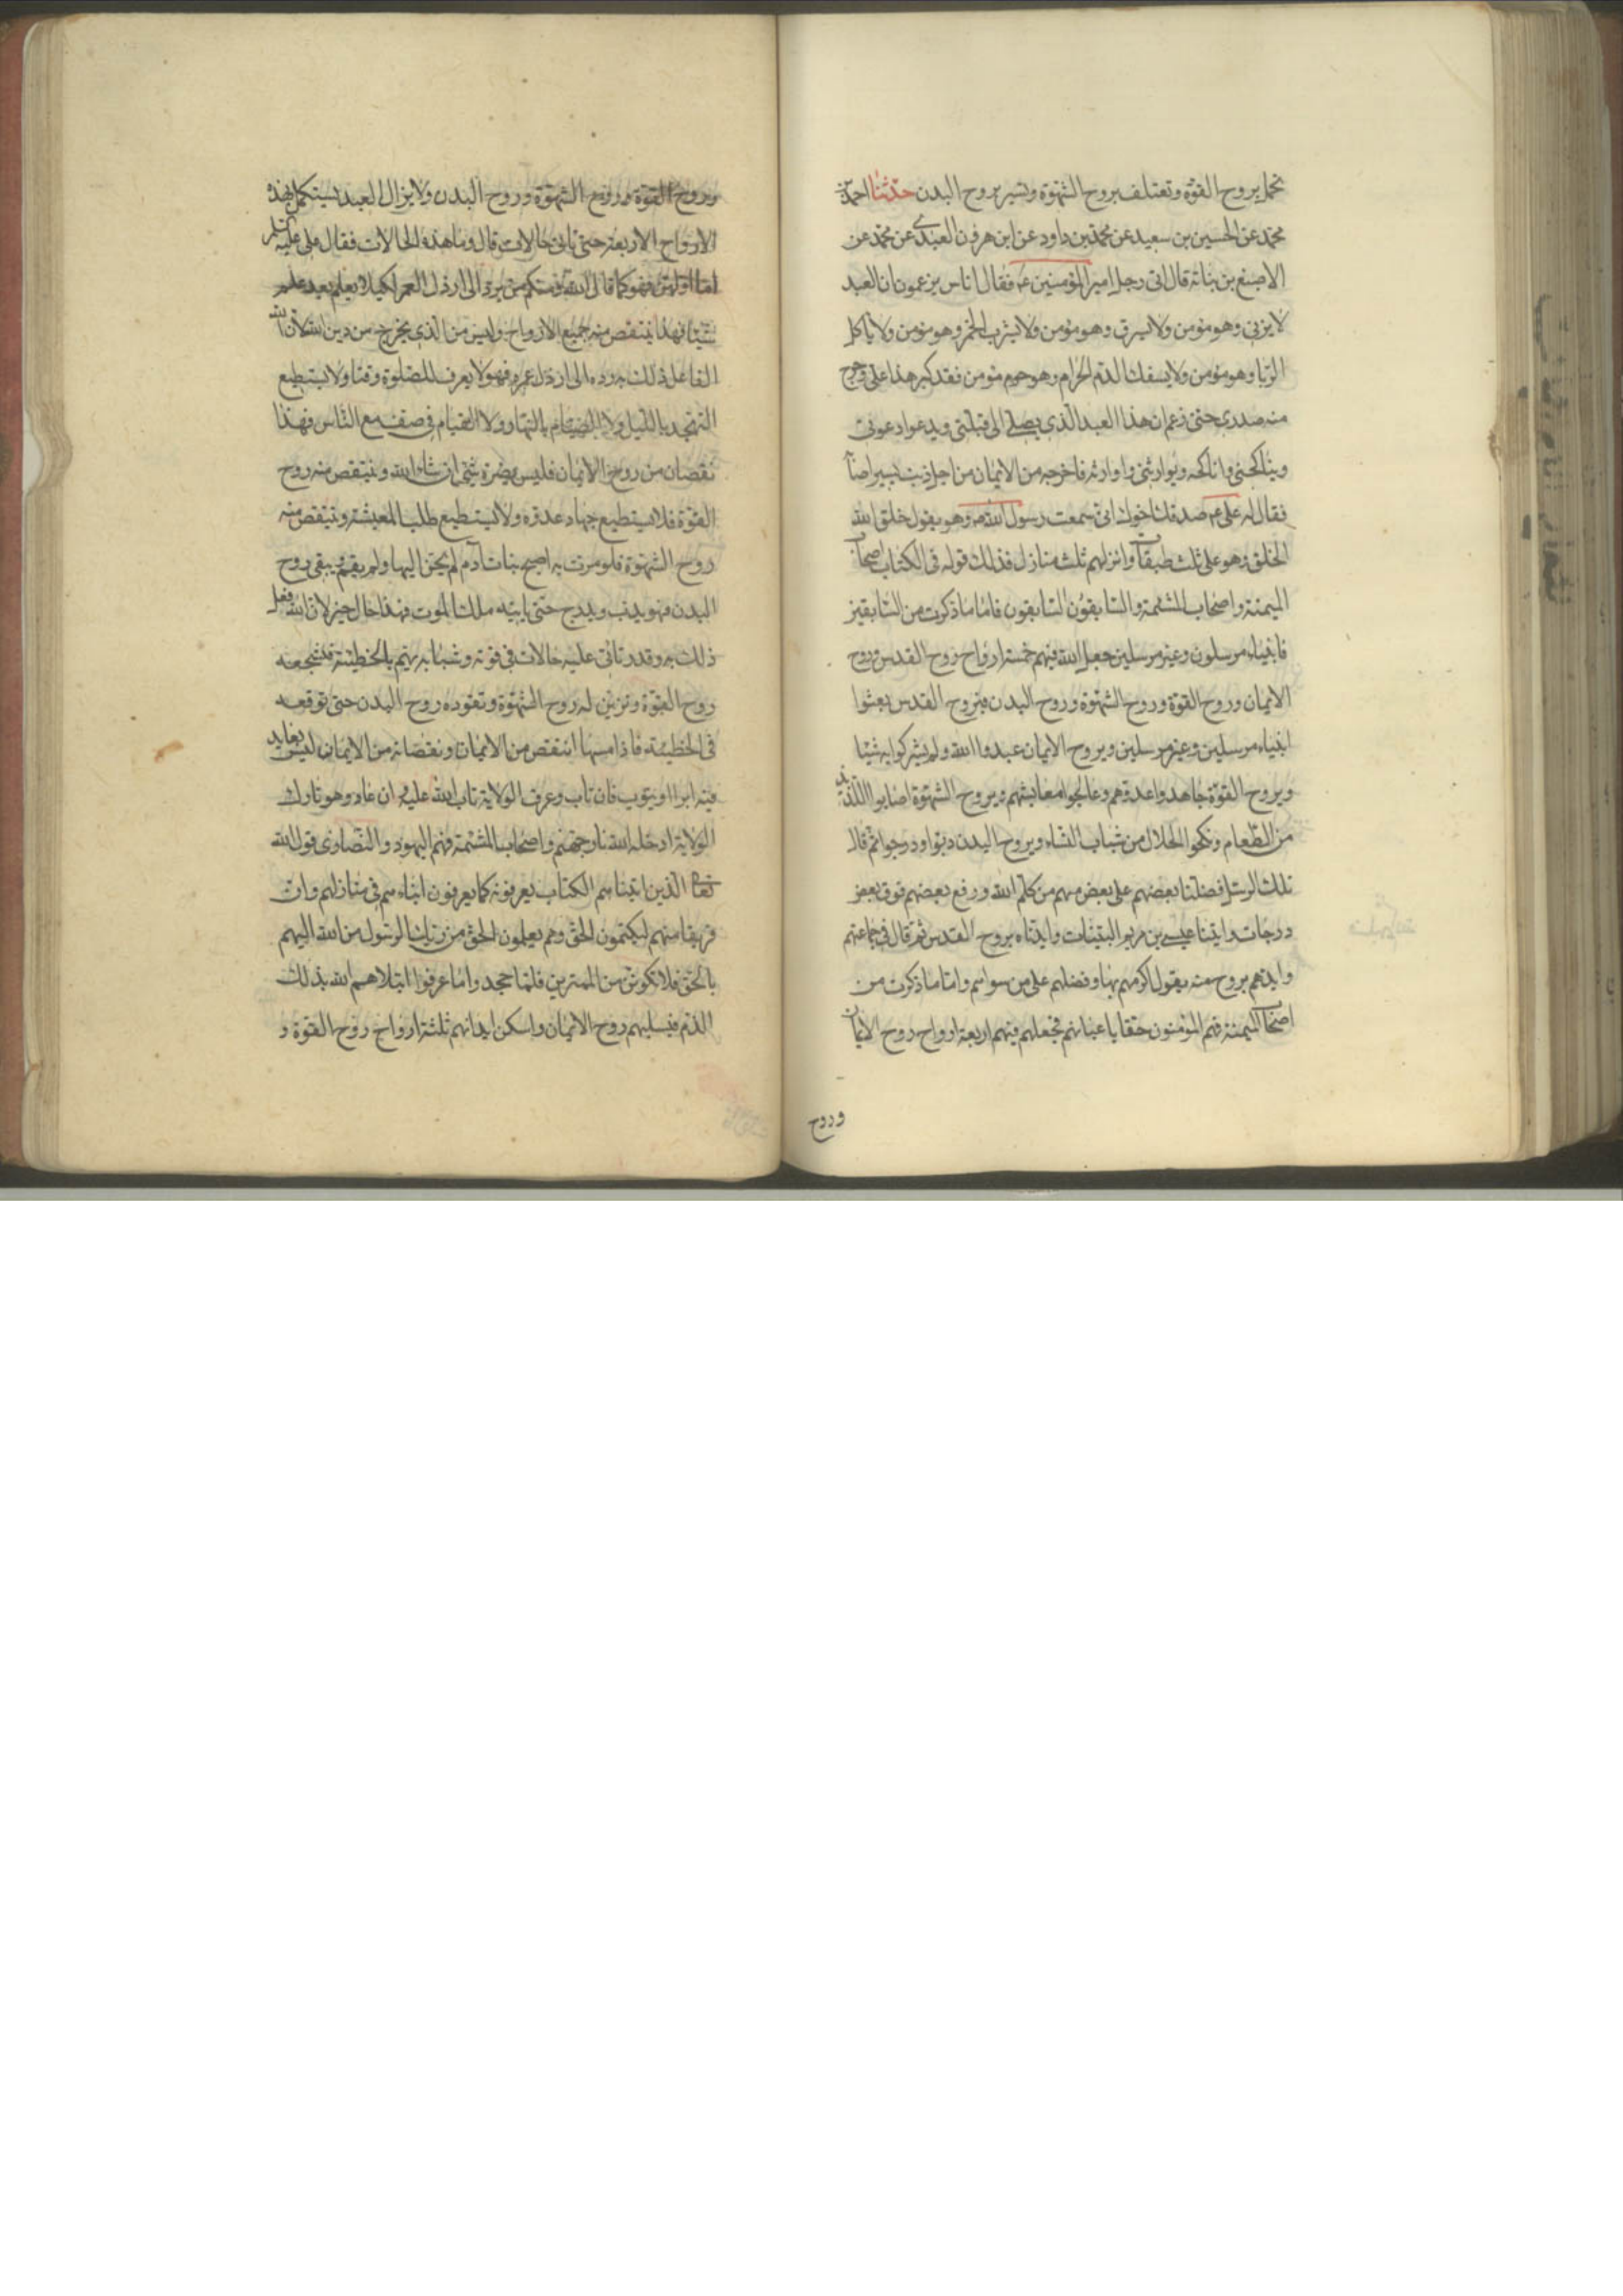 تحمل بروح القوّة وتعتلف بروح الشهوة وتسير بروح البدن حدّثنا احمد بن
محمد عن الحسين بن سعيد عن محمد بن داود عن ابن هرون العبدى عن محمد عن
الاصبغ بن بناته قال اتى رجل امير المؤمنين ع فقال اناس يزعمون ان العبد
لا يزنى وهو مؤمن ولا يسرق وهو مؤمن ولا يشرب الخمر وهو مؤمن ولا ياكل
الربا وهو مؤمن ولا يسفك الدم الحرام وهو مؤمن فقد كبر هذا على وحرج
منه صدرى حتى زعم ان هذا العبد الذى يصلى الى قبلتى ويدعو ادعوتى
ويناكحنى واناكحه ويوارثنى واوارثه فاخرجه من الايمان من اجل ذنب يسير اصابه
فقال له على ع صدقك اخوك انى سمعت رسول الله ص وهو يقول خلق الله
الخلق وهو على ثلث طبقات وانزلهم ثلث منازل فذلك قوله فى الكتاب اصحاب
الميمنة واصحاب المشئمة والسابقون السابقون فاما ما ذكرت من السابقين
فانبياء مرسلون وغير مرسلين جعل الله فيهم خمسة ارواح روح القدس وروح
الايمان وروح القوة وروح الشهوة وروح البدن فبروح القدس بعثوا
انبياء مرسلين وغير مرسلين وبروح الايمان عبدوا الله ولم يشركوا به شيئا
وبروح القوّة جاهدوا عدوهم وعالجوا معايشهم وبروح الشهوة اصابوا اللذيذ
من الطعام ونكحوا الحلال من شباب النساء وبروح البدن دبوا ودرجوا ثم قال
تلك الرسل فضلنا بعضهم على بعض منهم من كلم الله ورفع بعضهم فوق بعض
درجات واتينا عيسى بن مريم البينات وايدناه بروح القدس ثم قال فى جماعتهم
وايدهم بروح منه يقول اكرمهم بها وفضلهم على من سواهم واما ما ذكرت من
اصحاب الميمنة فهم المؤمنون حقا باعيانهم فجعلهم فيهم اربعة ارواح روح الايمان
وروح
وروح القوة وروح الشهوة وروح البدن ولا يزال العبد يستكمل بهذه
الارواح الاربعة حتى تاتى حالات قال وما هذه الحالات فقال على عليه السلم
اما اولهن فهو كما قال الله ومنكم من يرد الى ارذل العمر لكيلا يعلم بعد علم
شيئا فهذا ينتقص منه جميع الارواح وليس من الذى يخرج من دين الله لان الله
الفاعل ذلك به رده الى ارذل عمره فهو لا يعرف للصلوة وقتا ولا يستطيع
التهجد بالليل ولا الصيام بالنهار ولا القيام فى صف مع الناس فهذا
نقصان من روح الايمان فليس يضره شئ ان شاء الله وينتقص منه روح
القوة فلا يستطيع جهاد عدوه ولا يستطيع طلب المعيشة وينتقص منه
روح الشهوة فلو مرت به اصبح بنات آدم لم يحن اليها ولم يقم ويبقى روح
البدن فهو يدب ويدرج حتى ياتيه ملك الموت فهذا حال خير لان الله فعل
ذلك به وقد تاتى عليه حالات فى قوته وشبابه يهم بالخطيئة فتشجعه
روح القوة وتزين له روح الشهوة وتقوده روح البدن حتى توقعه
فى الخطيئة فاذا مسها انتقص من الايمان ونقصانه من الايمان ليس بعايد
فيه ابدا او يتوب فان تاب وعرف الولاية تاب الله عليه وان عاد وهو تارك
الولاية ادخله الله نار جهنم واصحاب المشئمة فهم اليهود والنصارى قول الله
تعالى الذين اتيناهم الكتاب يعرفونه كما يعرفون ابناءهم فى منازلهم وان
فريقا منهم ليكتمون الحق وهم يعلمون الحق من ربك الرسول من الله اليهم
بالحق فلا تكونن من الممترين فلما جحدوا ما عرفوا ابتلاهم الله بذلك
الذم فسلبهم روح الايمان واسكن ابدانهم ثلثة ارواح روح القوة و